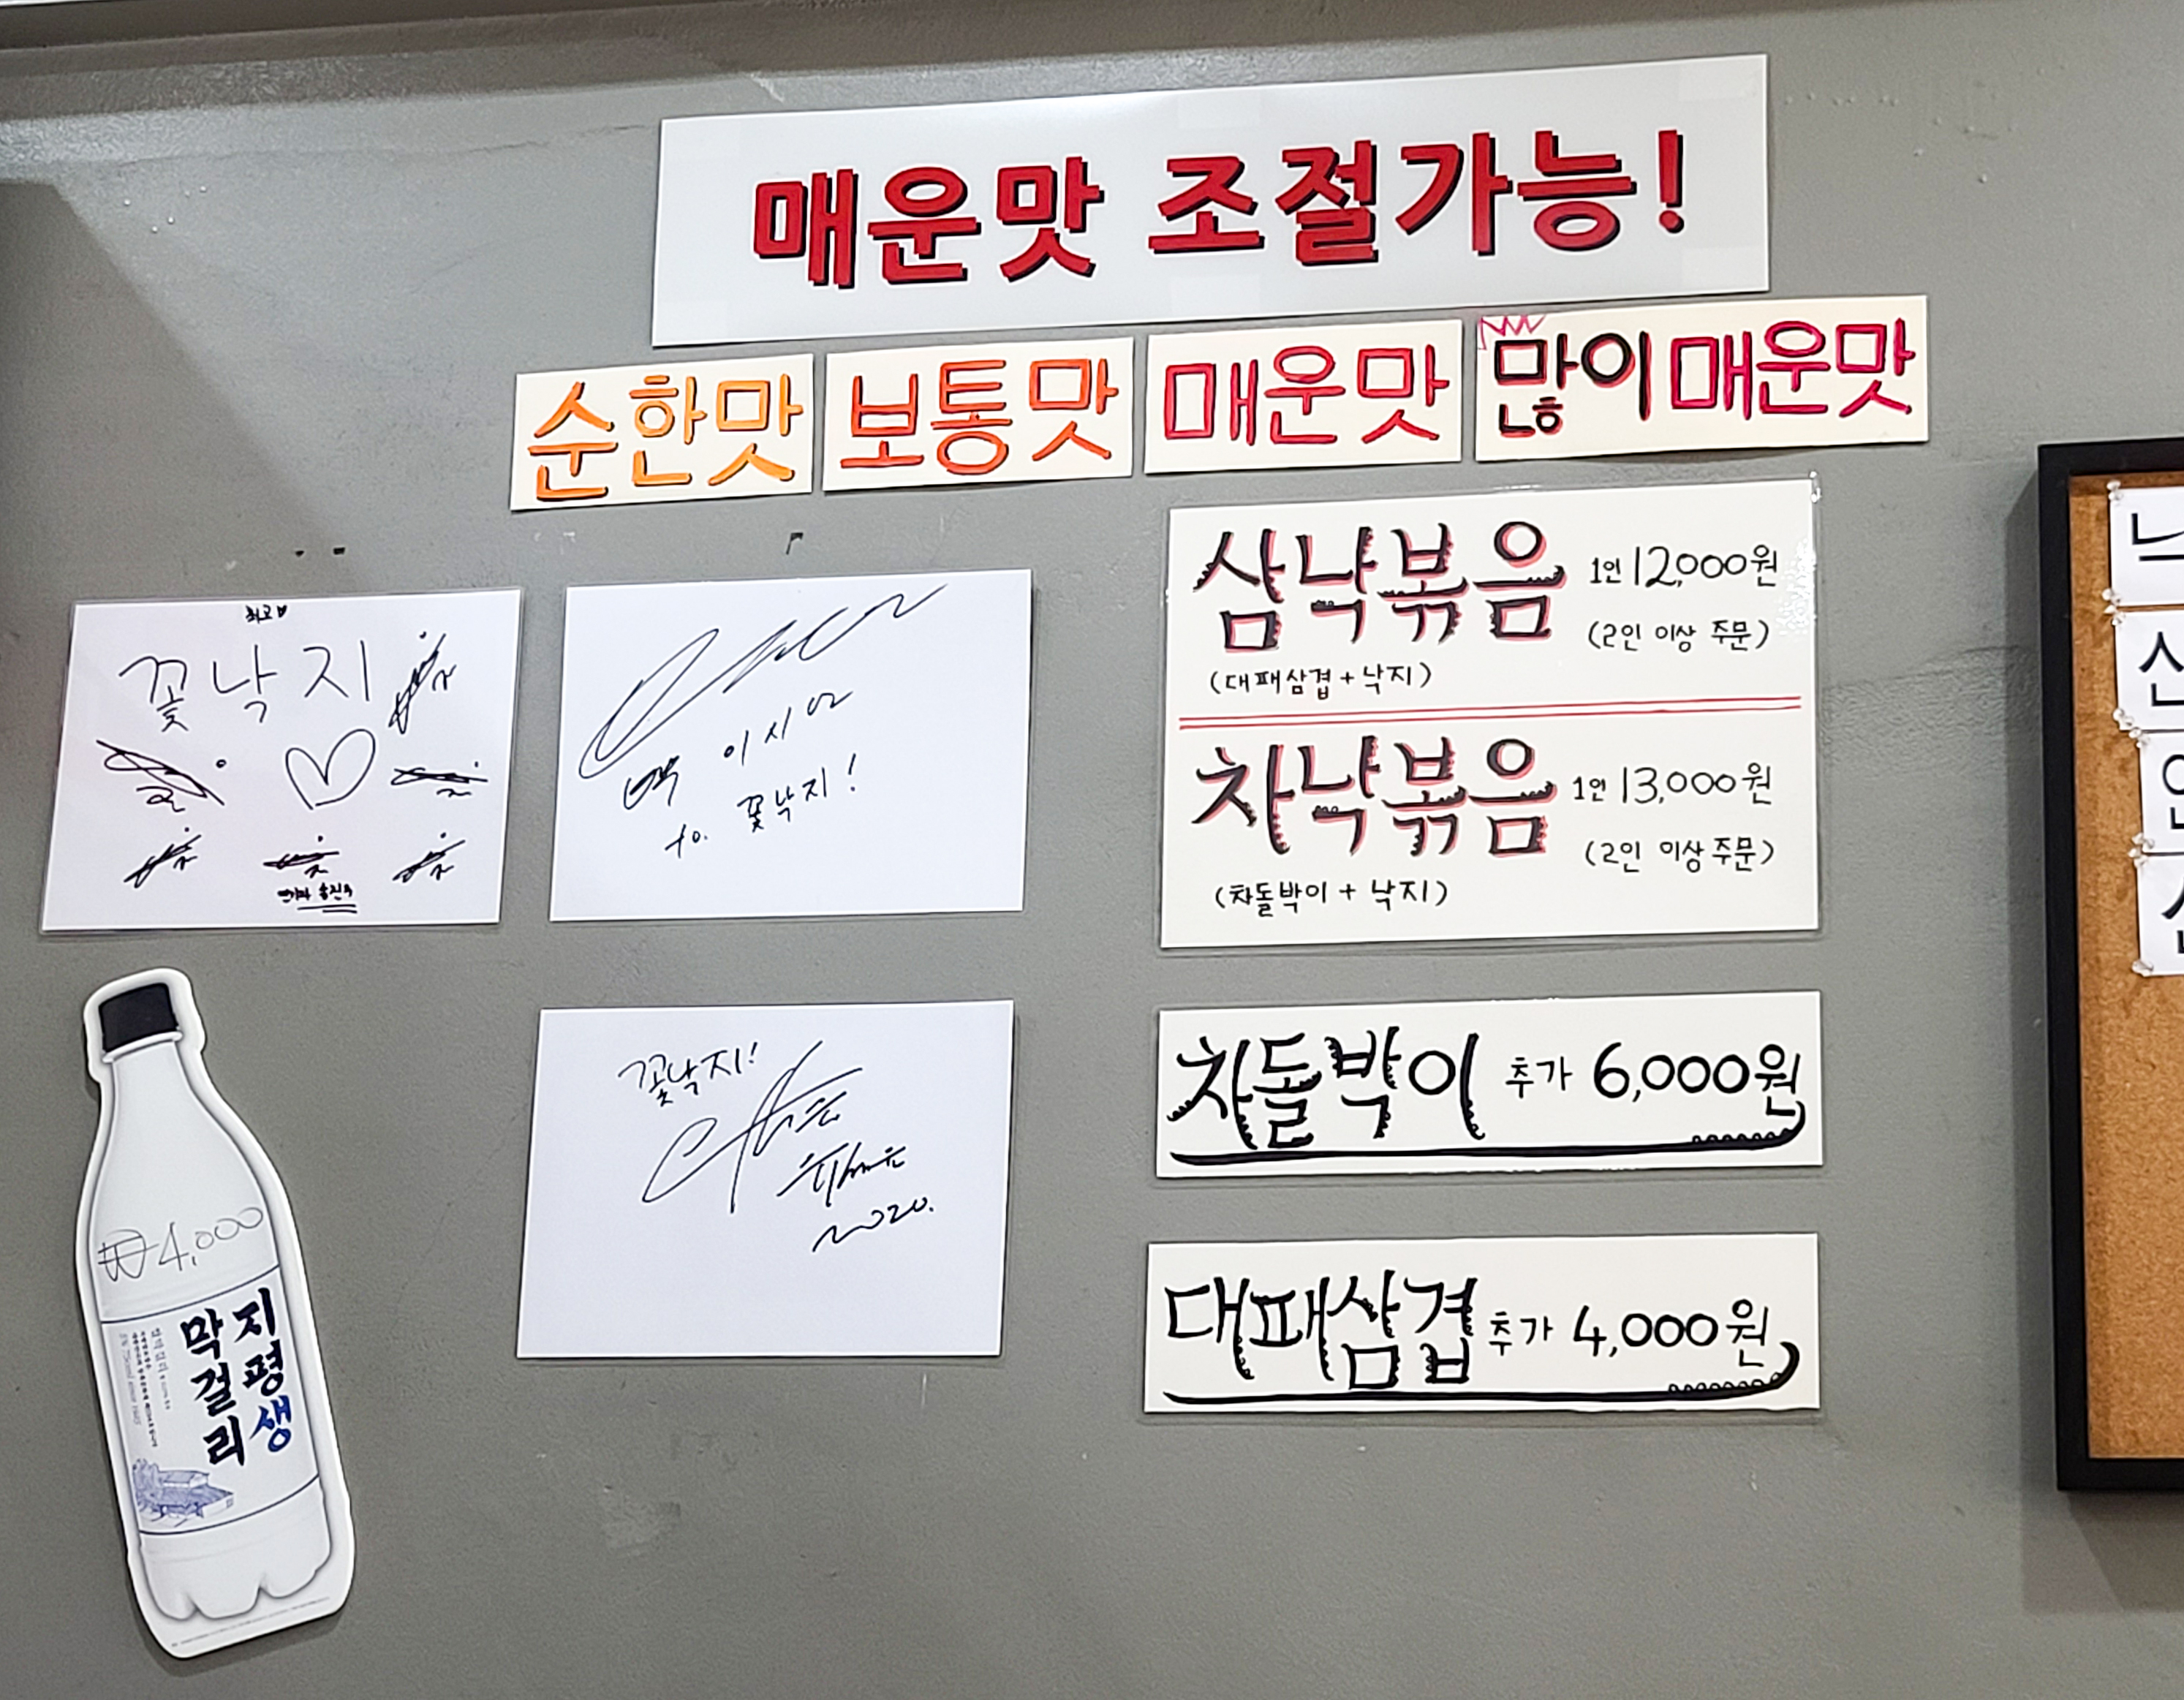 매운맛 조절가능!
순한맛
보통맛
매운맛
많이 매운맛
최고♥
꽃낙지
to. 꽃낙지!
삼낙볶음 1인 12,000원
(2인 이상 주문)
(대패삼겹+낙지)
차낙볶음 1인 13,000원
(2인 이상 주문)
(차돌박이 + 낙지)
꽃낙지!
2020.
차돌박이 추가 6,000원
대패삼겹 추가 4,000원
₩4,000
지평생
막걸리